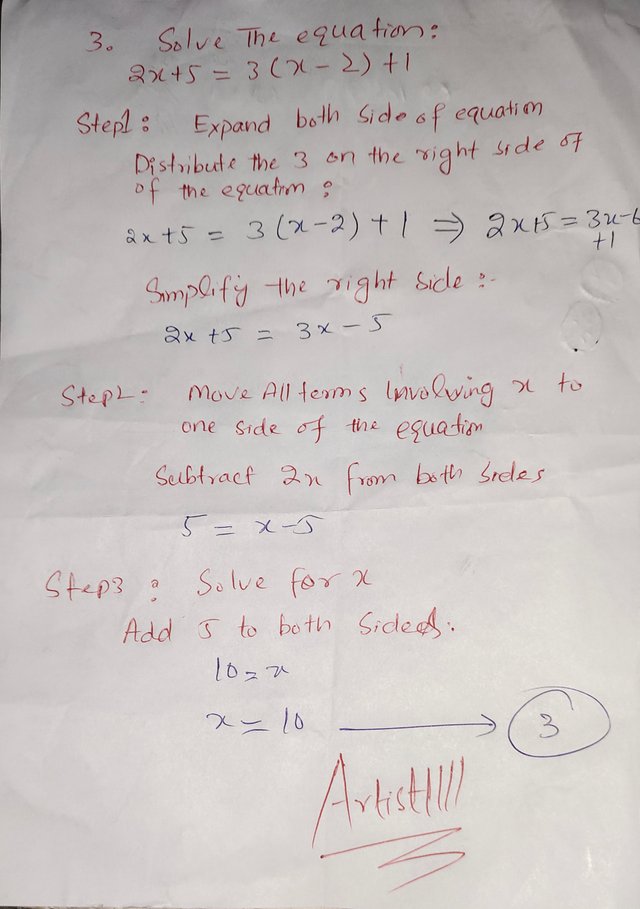 3. Solve The equation:
2x+5 = 3(x-2)+1
Step1: Expand both side of equation
Distribute the 3 on the right side of
of the equation:
2x+5 = 3(x-2)+1 ⇒ 2x+5 = 3x-6
+1
Simplify the right side:-
2x+5 = 3x-5
Step2: Move All terms Involving x to
one side of the equation
Subtract 2x from both sides
5 = x-5
Step3: Solve for x
Add 5 to both sides.
10=x
x=10 → 3
Artist1111